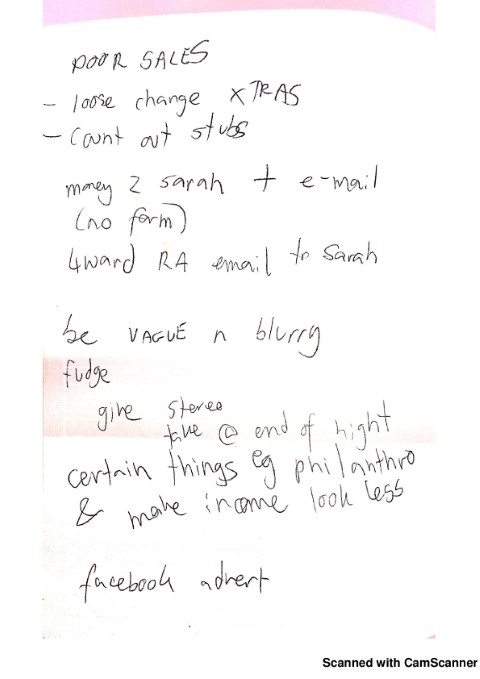 DOOR SALES
- loose change XTRAS
- Count out stubs
money 2 sarah + e-mail
(no form)
4ward RA email to Sarah
be VAGUE n blurry
fudge
give stereo
take @ end of night
certain things eg philanthro
& make income look less
facebook advert
Scanned with CamScanner